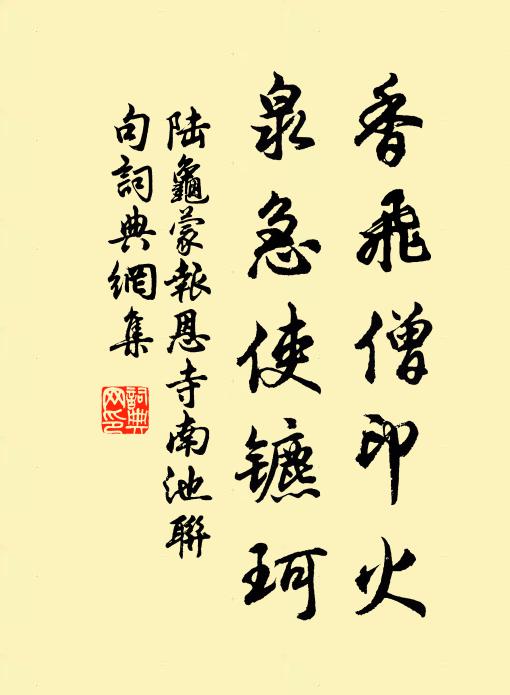 香飛僧印火
泉急使鑣珂
陆龜蒙報恩寺南池聯
句詞典網集
詞典
网印